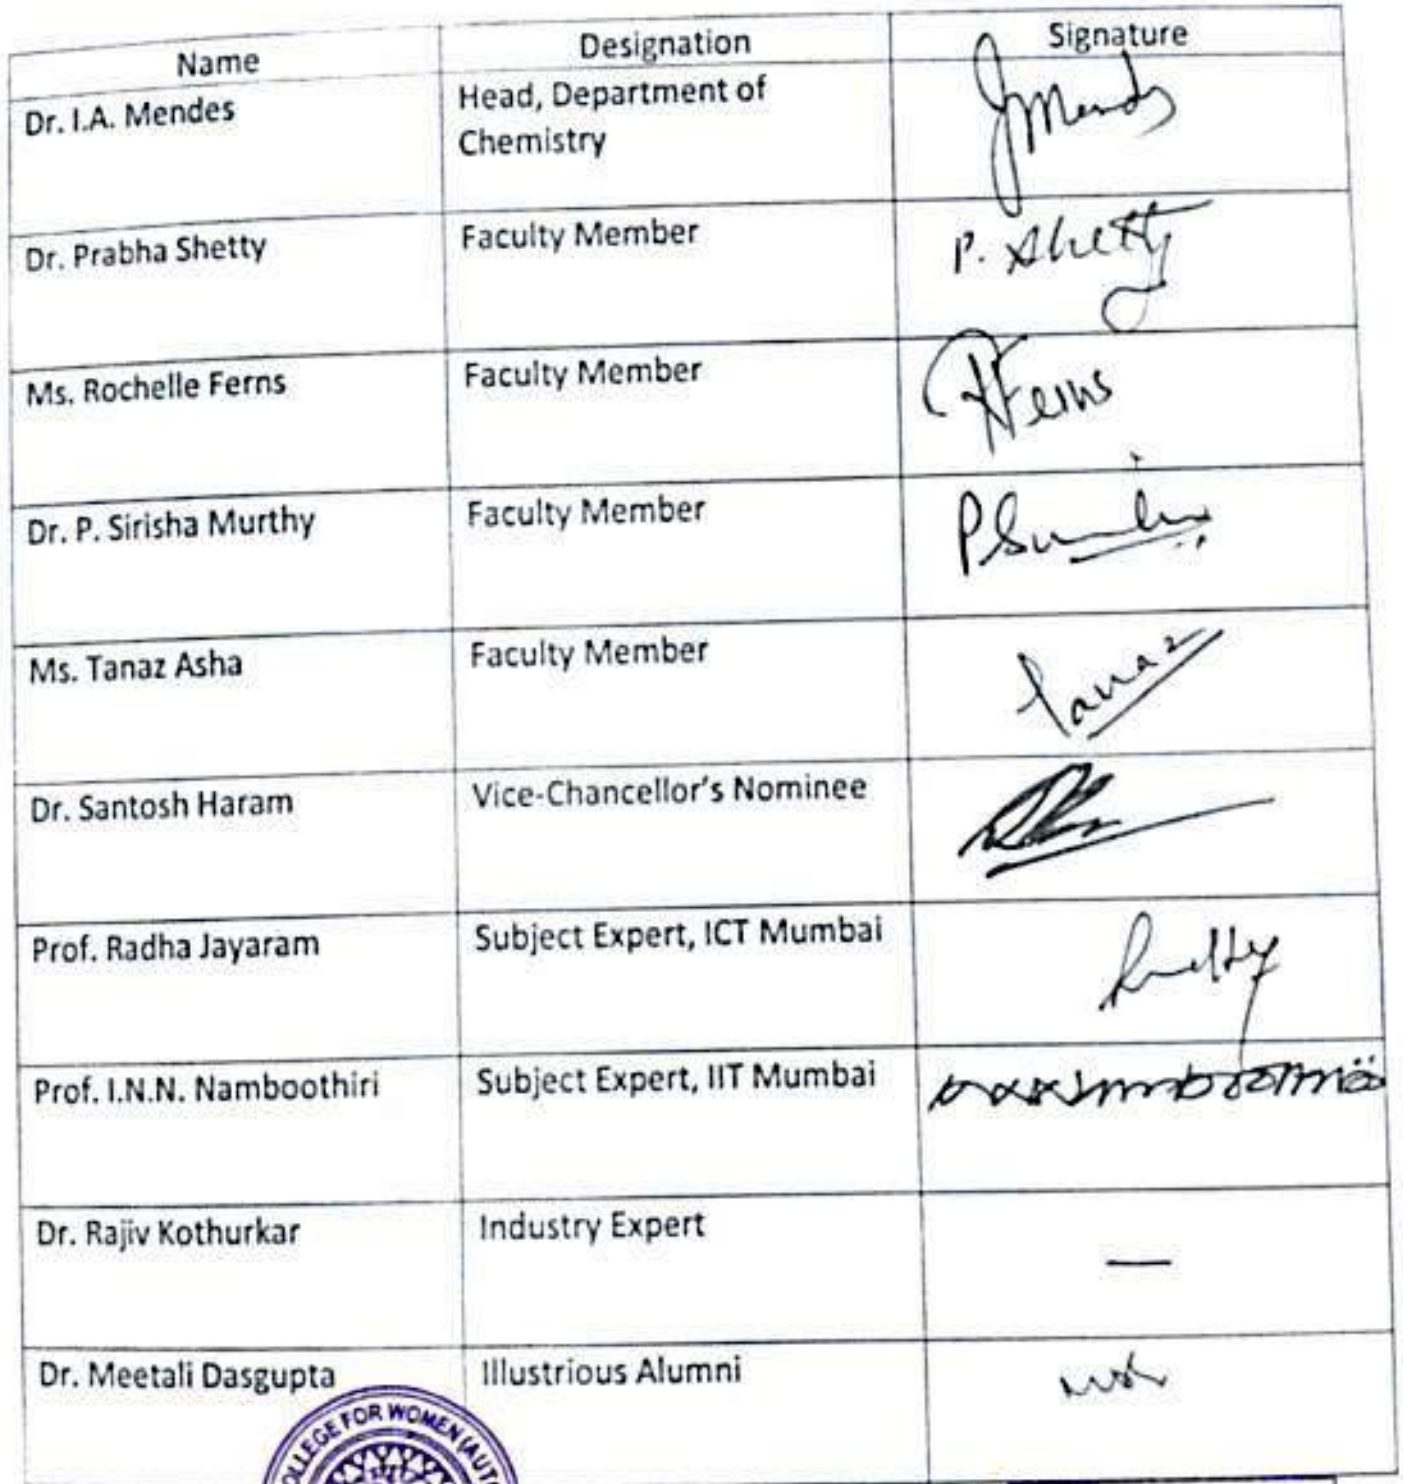 Name Designation Signature
Dr. I.A. Mendes Head, Department of
Chemistry JMendes
Dr. Prabha Shetty Faculty Member P. Shetty
Ms. Rochelle Ferns Faculty Member RFerns
Dr. P. Sirisha Murthy Faculty Member
Ms. Tanaz Asha Faculty Member Tanaz
Dr. Santosh Haram Vice-Chancellor's Nominee
Prof. Radha Jayaram Subject Expert, ICT Mumbai
Prof. I.N.N. Namboothiri Subject Expert, IIT Mumbai
Dr. Rajiv Kothurkar Industry Expert —
Dr. Meetali Dasgupta Illustrious Alumni
LLEGE FOR WOMEN (AUT